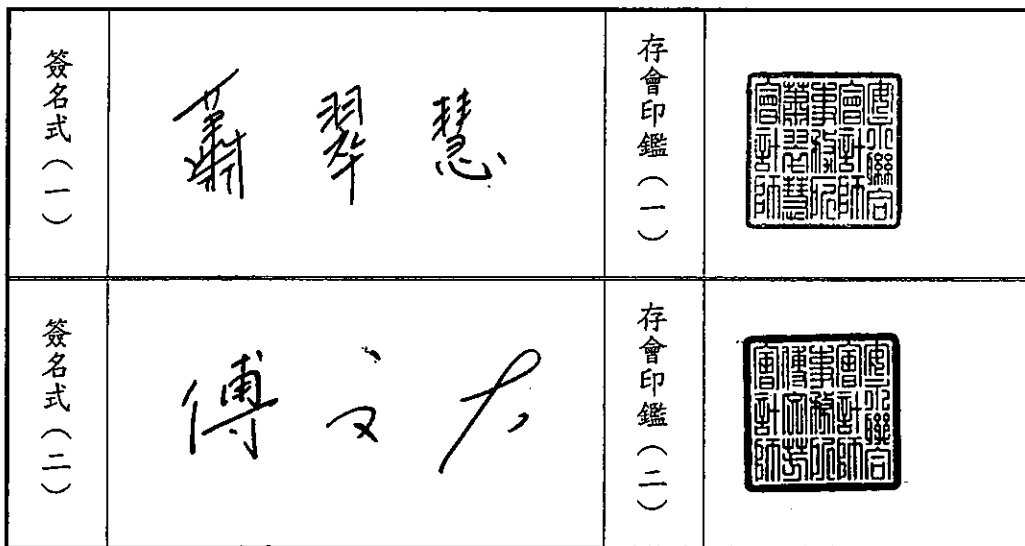 簽名式（一）
蕭翠慧
存會印鑑（一）
安永聯合
會計師
事務所
蕭翠慧
會計師
簽名式（二）
傅文芳
存會印鑑（二）
安永聯合
會計師
事務所
傅文芳
會計師